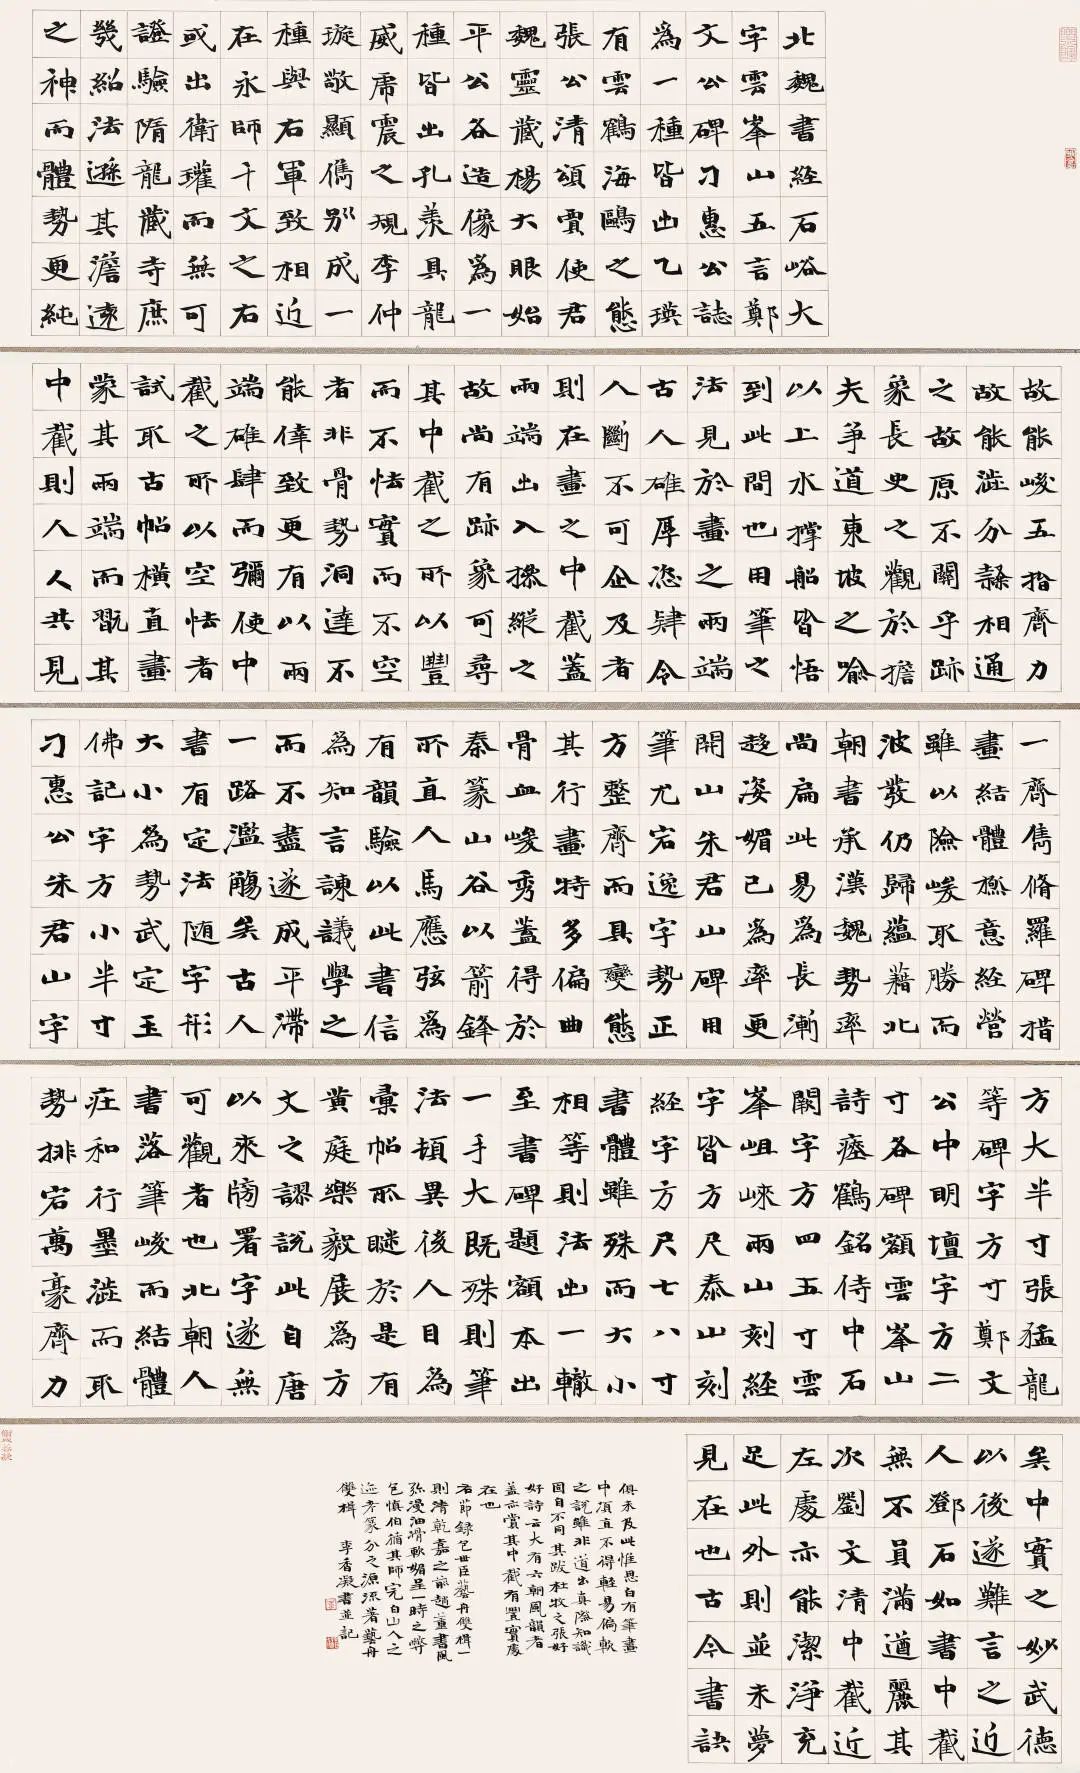 北魏書經石峪大
字雲峯山五言鄭
文公碑刁惠公誌
為一種皆出乙瑛
有雲鶴海鷗之態
張公清頌賈使君
魏靈藏楊大眼始
平公各造像為一
種皆出孔羨具龍
威虎震之規李仲
璇敬顯儁別成一
種與右軍致相近
在永師千文之右
或出衛瓘而無可
證驗隋龍藏寺庶
幾紹法遜其澹遠
之神而體勢更純
故能峻五指齊力
故能澁分隸相通
之故原不關乎跡
象長史之觀於擔
夫爭道東坡之喻
以上水撐船皆悟
到此間也用筆之
法見於畫之兩端
古人雄厚恣肆令
人斷不可企及者
則在畫之中截蓋
兩端出入操縱之
故尚有跡象可尋
其中截之所以豐
而不怯實而不空
者非骨勢洞達不
能倖致更有以兩
端雄肆而彌使中
截之所以空怯者
試取古帖橫直畫
蒙其兩端而翫其
中截則人人共見
一齊雋脩羅碑措
畫結體意經營
雖以險峻取勝而
波發仍歸蘊藉北
朝書承漢魏勢率
尚扁此易為長漸
趨姿媚已為率更
開山朱君山碑用
筆尤宕逸字勢正
方整齊而具變態
其行畫特多偏曲
骨血峻秀蓋得於
秦篆山谷以箭鋒
所直人馬應弦為
有韻驗以此書信
為知言諫議學之
而不盡遂成平滯
一路濫觴矣古人
書有定法隨字形
大小為勢武定玉
佛記字方小半寸
刁惠公朱君山字
方大半寸張猛龍
等碑字方寸鄭文
公中明壇字方二
寸各碑額雲峯山
詩瘞鶴銘侍中石
闕字方四五寸雲
峯岨崍兩山刻經
字皆方尺泰山刻
經字方尺七八寸
書體雖殊而大小
相等則法出一轍
至書碑題額本出
一手大既殊則筆
法頓異後人目為
彙帖所眯於是有
黃庭樂毅展為方
文之謬說此自唐
以來牓署字遂無
可觀者也北朝人
書落筆峻而結體
莊和行墨澁而取
勢排宕萬豪齊力
矣中實之妙武德
以後遂難言之近
人鄧石如書中截
無不員滿遒麗其
次劉文清中截近
左處亦能潔淨充
足此外則並未夢
見在也古今書訣
俱未及此惟思白有筆畫
中須直不得輕易偏軟
之說雖非道出真際知識
固自不同其跋杜牧之張好
好詩云大有六朝風韻者
蓋亦賞其中截有豐實處
在也
右節錄包世臣藝舟雙楫一
則清乾嘉之前趙董書風
弥漫油滑軟媚呈一時之弊
包慎伯循其師完白山人之
迹考篆分之源流著藝舟
雙楫 李香凝書並記